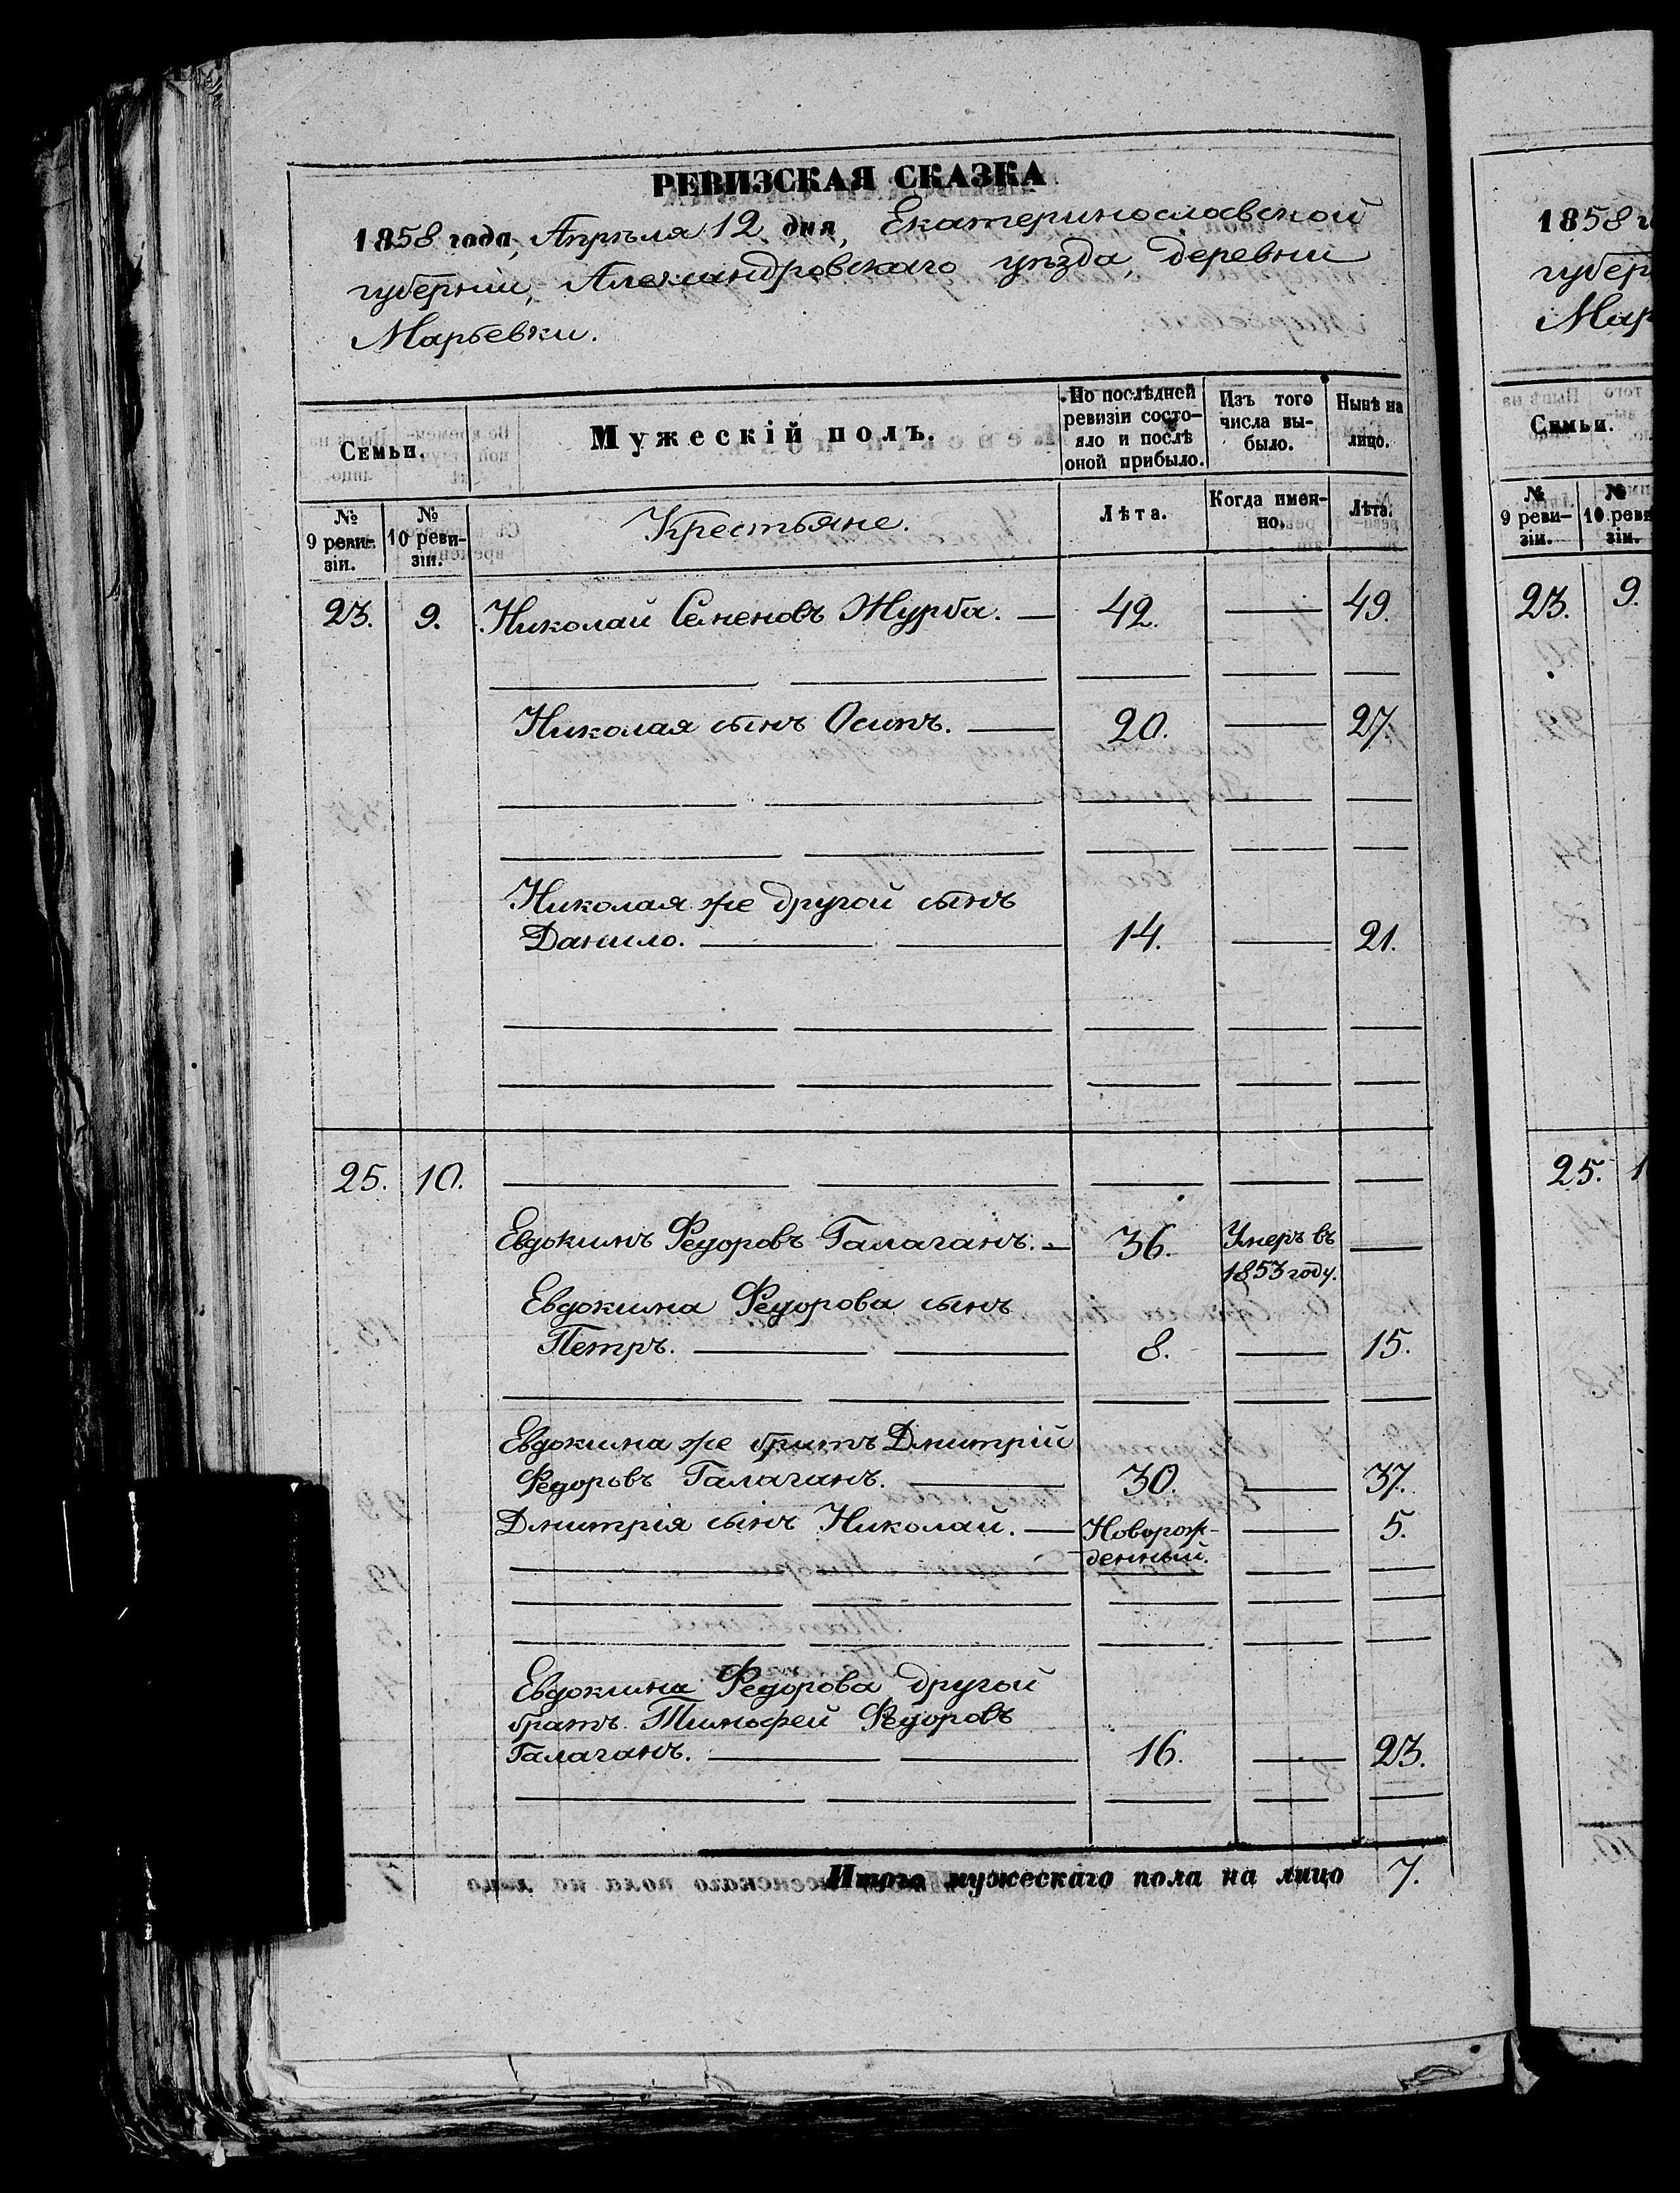 РЕВИЗСКАЯ СКАЗКА
1858 года, Апрѣля 12 дня, Екатеринославской
губерніи, Александровскаго уѣзда, деревни
Марьевки.
Семьи.
Мужескій полъ.
По послѣдней ревизіи состояло и послѣ оной прибыло.
Изъ того числа выбыло.
Нынѣ на лицо.
№ 9 ревизіи.
№ 10 ревизіи.
Крестьяне.
Лѣта.
Когда именно.
Лѣта.
23. 9. Николай Семеновъ Журба. — 42. — 49.
Николая сынъ Осипъ. — 20. — 27.
Николая же другой сынъ
Данило. — 14. — 21.
25. 10.
Евдокимъ Федоровъ Галаганъ. — 36. Умеръ въ —
1853 году.
Евдокима Федорова сынъ
Петръ. — 8. — 15.
Евдокима же братъ Дмитрій
Федоровъ Галаганъ. — 30. — 37.
Дмитрія сынъ Николай. — Новорож- — 5.
денный.
Евдокима Федорова другой
братъ Тимофей Федоровъ
Галаганъ. — 16. — 23.
Итого мужескаго пола на лицо 7.
1858 г
губер
Мар
Семьи.
№ 9 ревизіи.
№ 10 реви
зіи.
23. 9.
25. 1